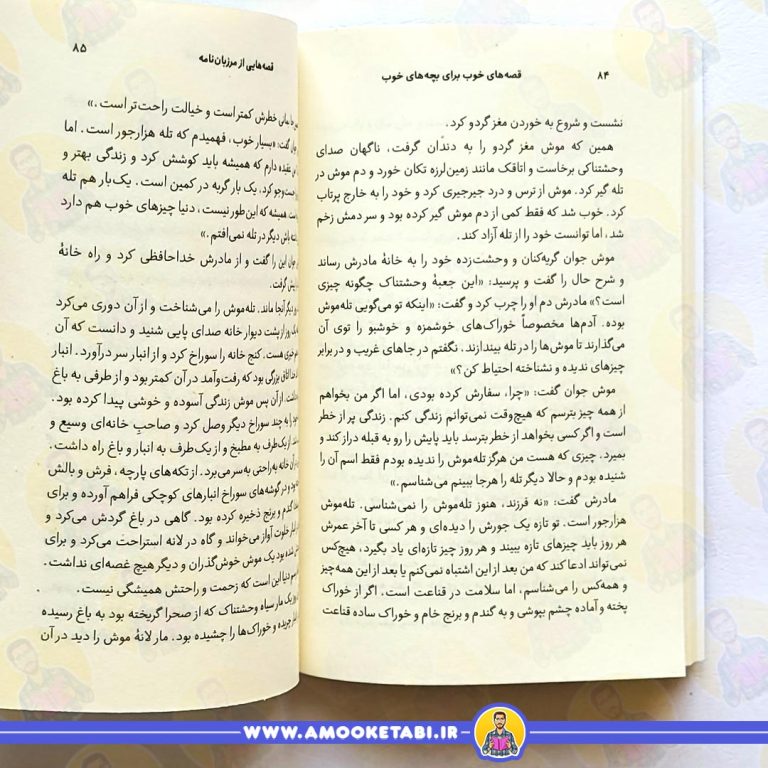 ۸۴
قصه‌های خوب برای بچه‌های خوب
نشست و شروع به خوردن مغز گردو کرد.
همین که موش مغز گردو را به دندان گرفت، ناگهان صدای
وحشتناکی برخاست و اتاقک مانند زمین‌لرزه تکان خورد و دم موش در
تله گیر کرد. موش از ترس و درد جیرجیری کرد و خود را به خارج پرتاب
کرد. خوب شد که فقط کمی از دم موش گیر کرده بود و سر دمش زخم
شد، اما توانست خود را از تله آزاد کند.
موش جوان گریه‌کنان و وحشت‌زده خود را به خانهٔ مادرش رساند
و شرح حال را گفت و پرسید: «این جعبهٔ وحشتناک چگونه چیزی
است؟» مادرش دم او را چرب کرد و گفت: «اینکه تو می‌گویی تله‌موش
بوده. آدم‌ها مخصوصاً خوراک‌های خوشمزه و خوشبو را توی آن
می‌گذارند تا موش‌ها را در تله بیندازند. نگفتم در جاهای غریب و در برابر
چیزهای ندیده و نشناخته احتیاط کن؟»
موش جوان گفت: «چرا، سفارش کرده بودی، اما اگر من بخواهم
از همه چیز بترسم که هیچ‌وقت نمی‌توانم زندگی کنم. زندگی پر از خطر
است و اگر کسی بخواهد از خطر بترسد باید پایش را رو به قبله دراز کند و
بمیرد. چیزی که هست من هرگز تله‌موش را ندیده بودم فقط اسم آن را
شنیده بودم و حالا دیگر تله را هرجا ببینم می‌شناسم.»
مادرش گفت: «نه فرزند، هنوز تله‌موش را نمی‌شناسی. تله‌موش
هزارجور است. تو تازه یک جورش را دیده‌ای و هر کسی تا آخر عمرش
هر روز باید چیزهای تازه ببیند و هر روز چیز تازه‌ای یاد بگیرد، هیچ‌کس
نمی‌تواند ادعا کند که من بعد از این اشتباه نمی‌کنم یا بعد از این همه‌چیز
و همه‌کس را می‌شناسم، اما سلامت در قناعت است. اگر از خوراک
پخته و آماده چشم بپوشی و به گندم و برنج خام و خوراک ساده قناعت
قصه‌هایی از مرزبان‌نامه
۸۵
خطرش کمتر است و خیالت راحت‌تر است.»
گفت: «بسیار خوب، فهمیدم که تله هزارجور است. اما
دارم که همیشه باید کوشش کرد و زندگی بهتر و
کرد. یک بار گربه در کمین است. یک‌بار هم تله
همیشه که این‌طور نیست، دنیا چیزهای خوب هم دارد
دیگر در تله نمی‌افتم.»
این را گفت و از مادرش خداحافظی کرد و راه خانهٔ
گرفت.
دیگر آنجا ماند. تله‌موش را می‌شناخت و از آن دوری می‌کرد
روز از پشت دیوار خانه صدای پایی شنید و دانست که آن
خبری هست. کنج خانه را سوراخ کرد و از انبار سر درآورد. انبار
اتاق بزرگی بود که رفت‌وآمد در آن کمتر بود و از طرفی به باغ
از آن پس موش زندگی آسوده و خوشی پیدا کرده بود.
را به چند سوراخ دیگر وصل کرد و صاحب خانه‌ای وسیع و
از یک‌طرف به مطبخ و از یک‌طرف به انبار و باغ راه داشت.
آن خانه به‌راحتی به‌سر می‌برد. از تکه‌های پارچه، فرش و بالش
و در گوشه‌های سوراخ انبارهای کوچکی فراهم آورده و برای
گندم و برنج ذخیره کرده بود. گاهی در باغ گردش می‌کرد و
خلوت آواز می‌خواند و گاه در لانه استراحت می‌کرد و برای
بود یک موش خوش‌گذران و دیگر هیچ غصه‌ای نداشت.
دنیا این است که زحمت و راحتش همیشگی نیست.
یک مار سیاه وحشتناک که از صحرا گریخته بود به باغ رسیده
و خوراک‌ها را چشیده بود. مار لانهٔ موش را دید در آن
WWW.AMOOKETABI.IR